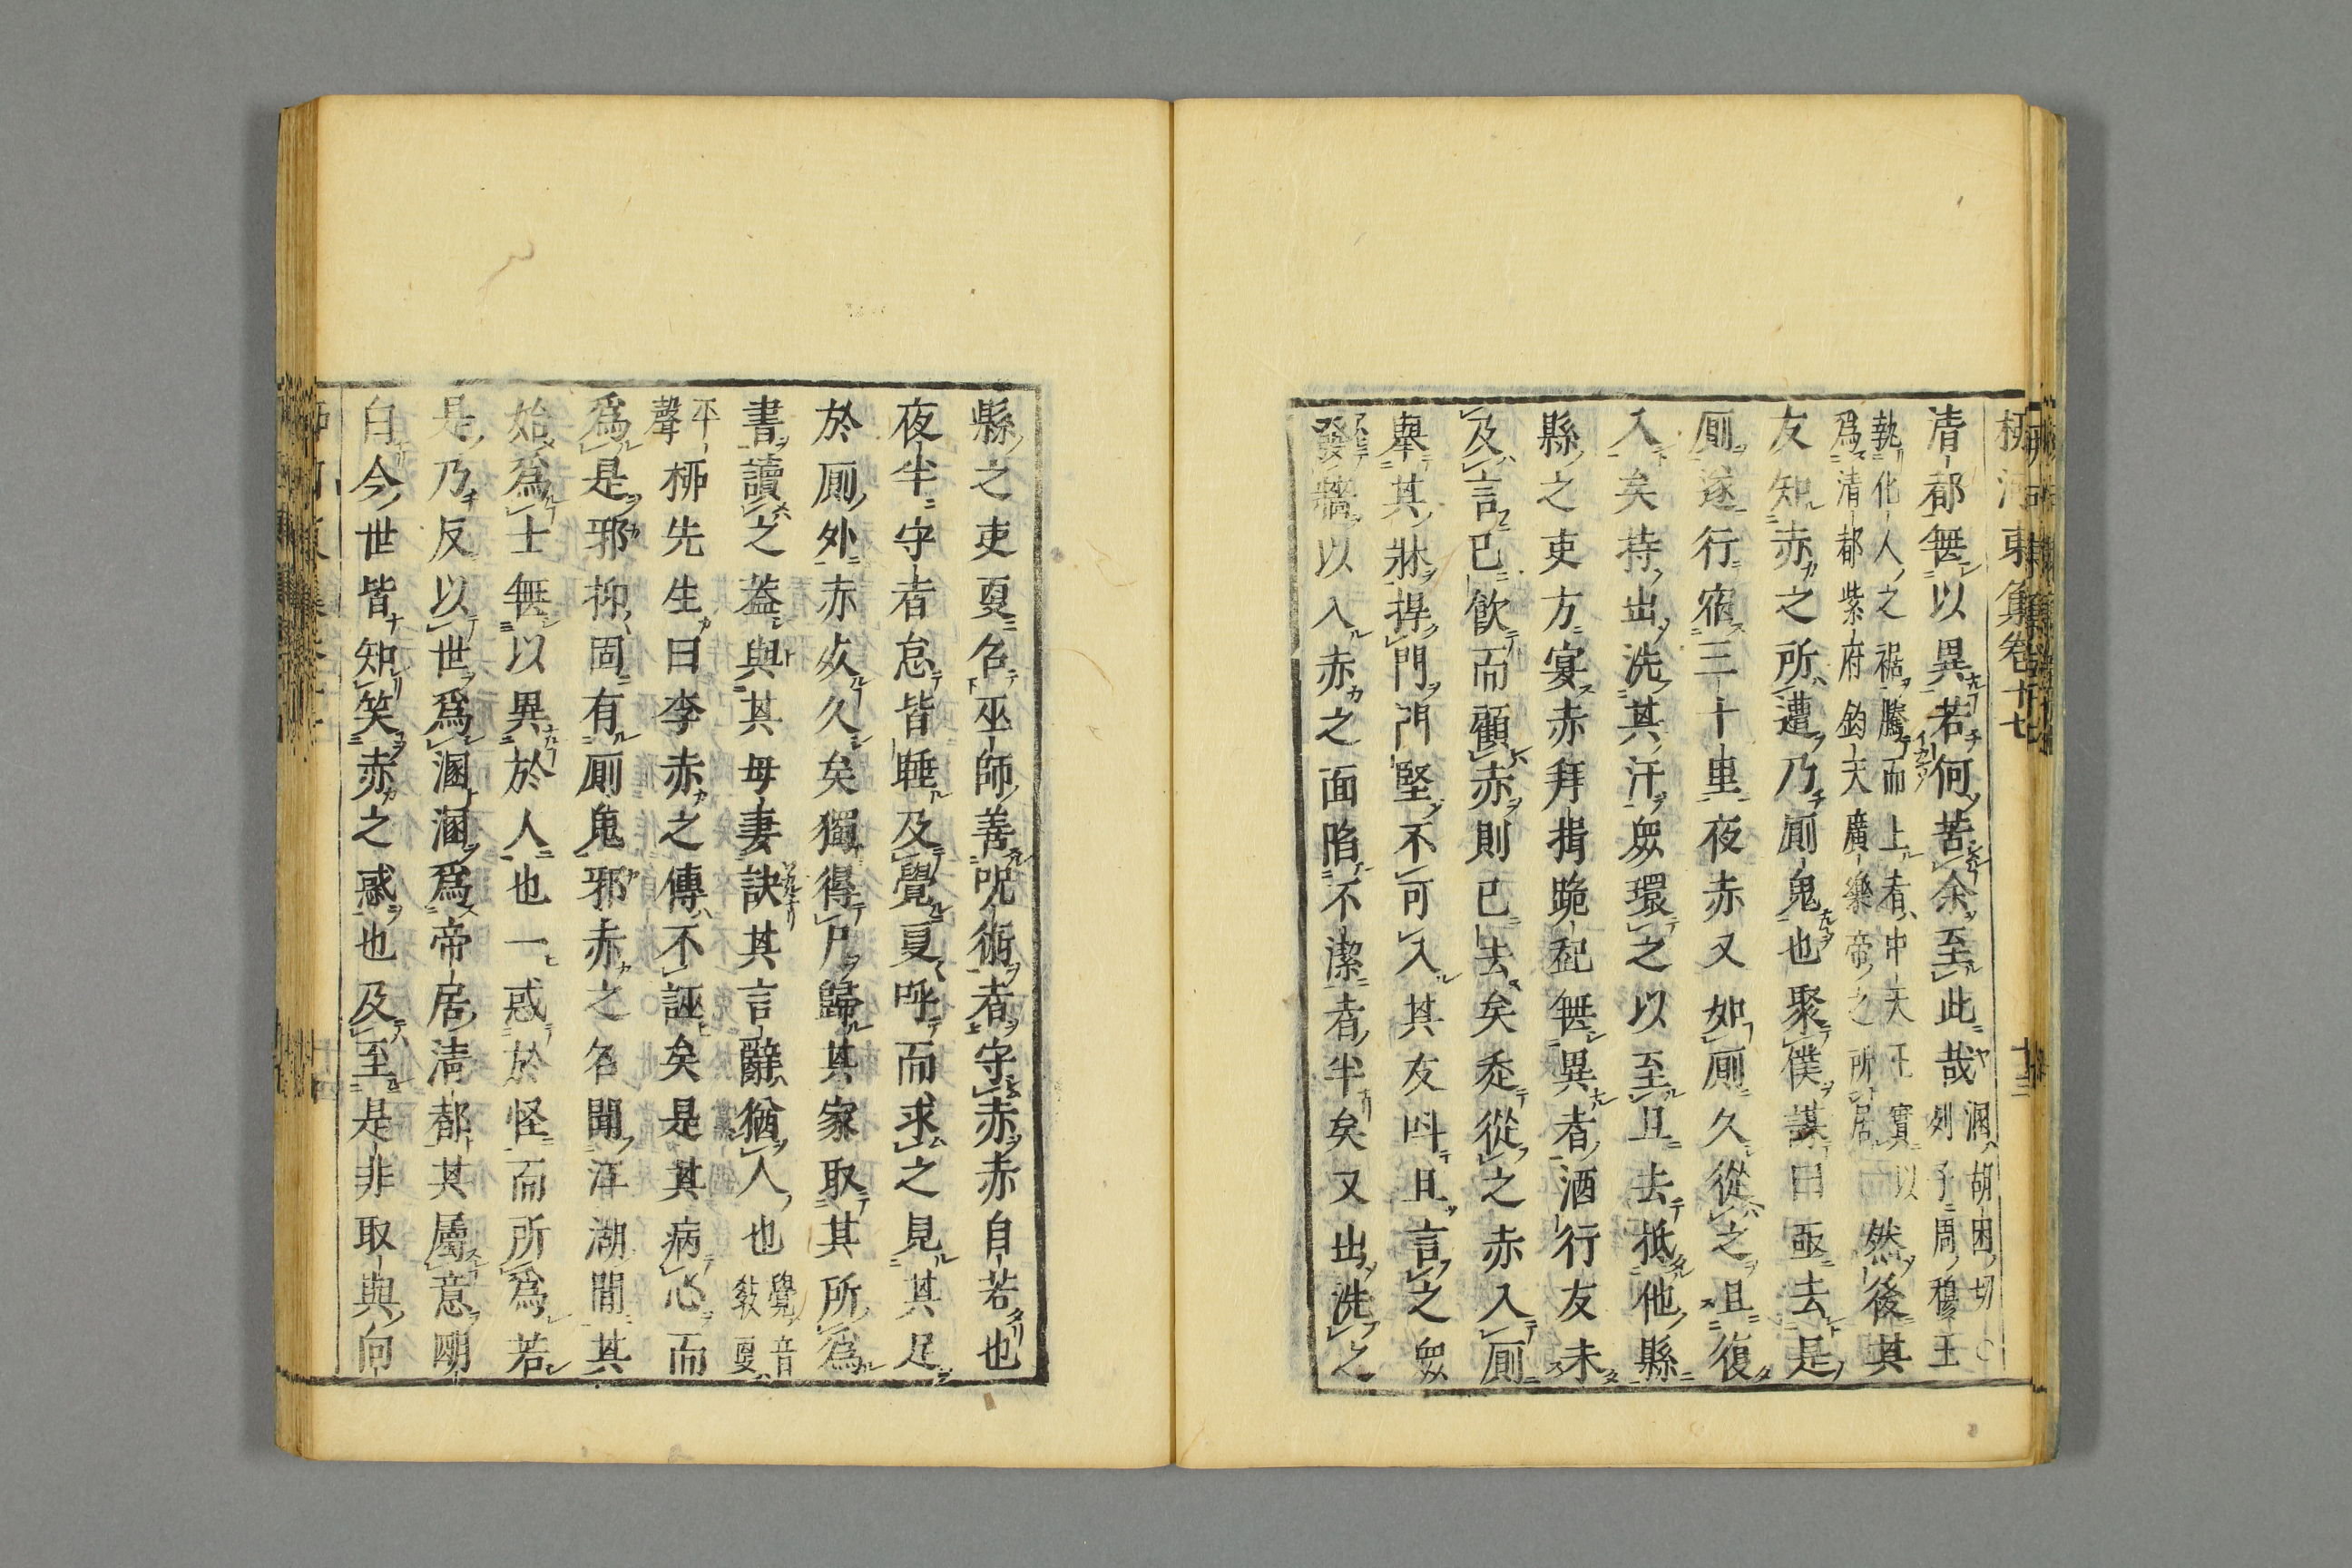 柳河東集卷十七
清都無以異若何苦余至此哉溷胡困切○
列子周穆王
執化人之裾騰而上者中天王實以
爲清都紫府鈞天廣樂帝之所居
然後其
友知赤之所遭乃厠鬼也聚僕謀曰亟去是
厠遂行宿三十里夜赤又如厠久從之且復
入矣持出洗其汗衆環之以至旦去抵他縣
縣之吏方宴赤拜揖跪起無異者酒行友未
及言已飲而顧赤則已去矣走從之赤入厠
舉其牀捍門門堅不可入其友叫且言之衆
發牆以入赤之面陷不潔者半矣又出洗之
縣之吏更召巫師善呪術者守赤赤自若也
夜半守者怠皆睡及覺更呼而求之見其足
於厠外赤死久矣獨得尸歸其家取其所爲
書讀之蓋與其母妻訣其言辭猶人也覺音
敎更
平
聲柳先生曰李赤之傳不誣矣是其病心而
爲是邪抑固有厠鬼邪赤之名聞江湖間其
始爲士無以異於人也一惑於怪而所爲若
是乃反以世爲溷溷爲帝居清都其屬意明
白今世皆知笑赤之惑也及至是非取與向